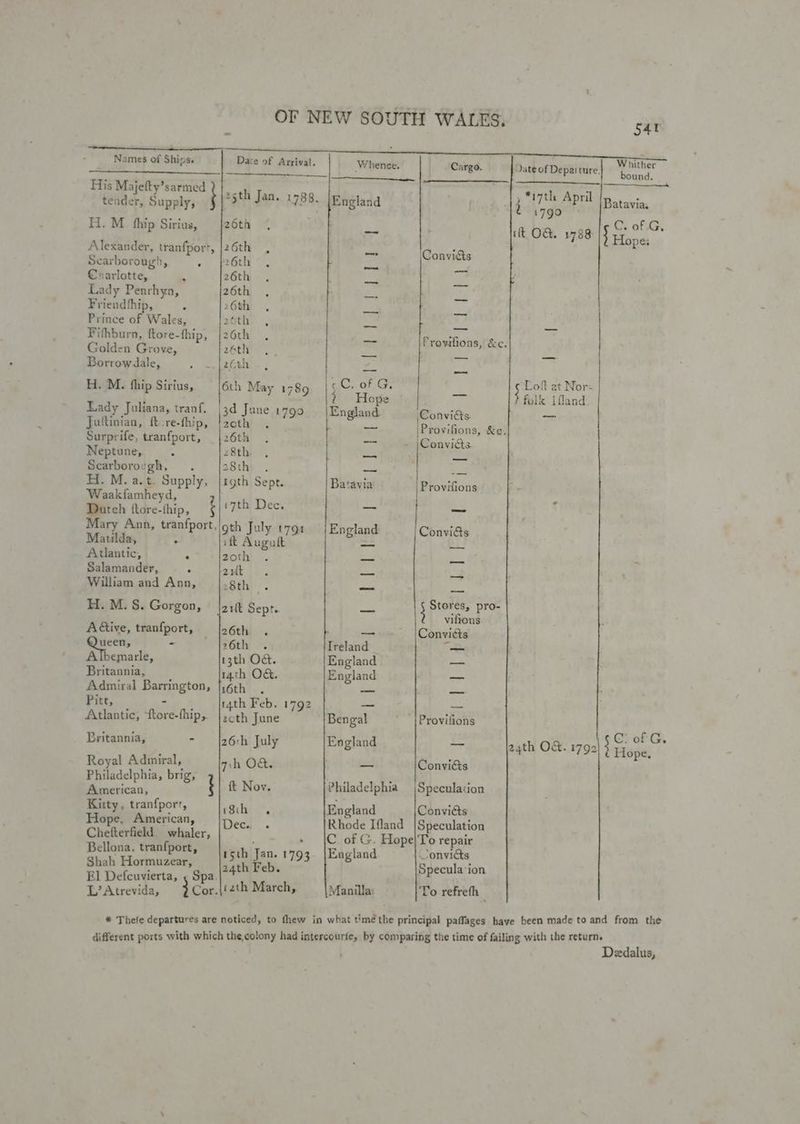 OF NEW SOUTH WALES. 541
Names of Ships. Date of Arrival. Whence. Cargo. Date of Departure. Whither bound.
His Majeſty'sarmed tender, Supply, } 25th Jan. 1788. England *17th April 1790 Batavia.
H. M. ſhip Sirius, 26th . — 1ſt Oct. 1788 { C. of G. Hope:
Alexander, tranſport, 26th . — Convicts
Scarborough, . 26th . — —
Charlotte, . 26th . — —
Lady Penrhyn, 26th . — —
Friendſhip, . 26th . — —
Prince of Wales, 26th . — —
Fiſhburn, ſtore-ſhip, 26th . — Proviſions, &c. —
Golden Grove, 26th . — — —
Borrowdale, . 26th . — —
H. M. ſhip Sirius, 6th May 1789 { C. of G. Hope — { Loſt at Norfolk Iſland.
Lady Juliana, tranſ. 3d June 1790 England Convicts —
Juſtinian, ſtore-ſhip, 20th . — Proviſions, &c.
Surpriſe, tranſport, 26th . — Convicts
Neptune, . 28th . — —
Scarborough, . 28th . — —
H. M. a. t. Supply, 19th Sept. Batavia Proviſions
Waakſamheyd, Dutch ſtore-ſhip, } 17th Dec. — —
Mary Ann, tranſport, 9th July 1791 England Convicts
Matilda, . 1ſt Auguſt — —
Atlantic, . 20th . — —
Salamander, . 21ſt . — —
William and Ann, 28th . — —
H. M. S. Gorgon, 21ſt Sept. — { Stores, proviſions
Active, tranſport, 26th . — Convicts
Queen, - 26th . Ireland —
Albemarle, 13th Oct. England —
Britannia, 14th Oct. England —
Admiral Barrington, 16th . — —
Pitt, - 14th Feb. 1792 — —
Atlantic, ſtore-ſhip, 20th June Bengal Proviſions
Britannia, - 26th July England — 24th Oct. 1792 { C. of G. Hope.
Royal Admiral, 7th Oct. — Convicts
Philadelphia, brig, American, } ſt Nov. Philadelphia Speculation
Kitty, tranſport, 18th . England Convicts
Hope, American, Dec. . Rhode Iſland Speculation
Cheſterfield whaler, . C. of G. Hope To repair
Bellona, tranſport, 15th Jan. 1793 England Convicts
Shah Hormuzear, 24th Feb. Speculation
El Deſcuvierta, L'Atrevida, { Spa. Cor. 12th March, Manilla To refreſh
* Theſe departures are noticed, to ſhew in what time the principal paſſages have been made to and from the
different ports with which the colony had intercourſe, by comparing the time of ſailing with the return.
Dædalus,